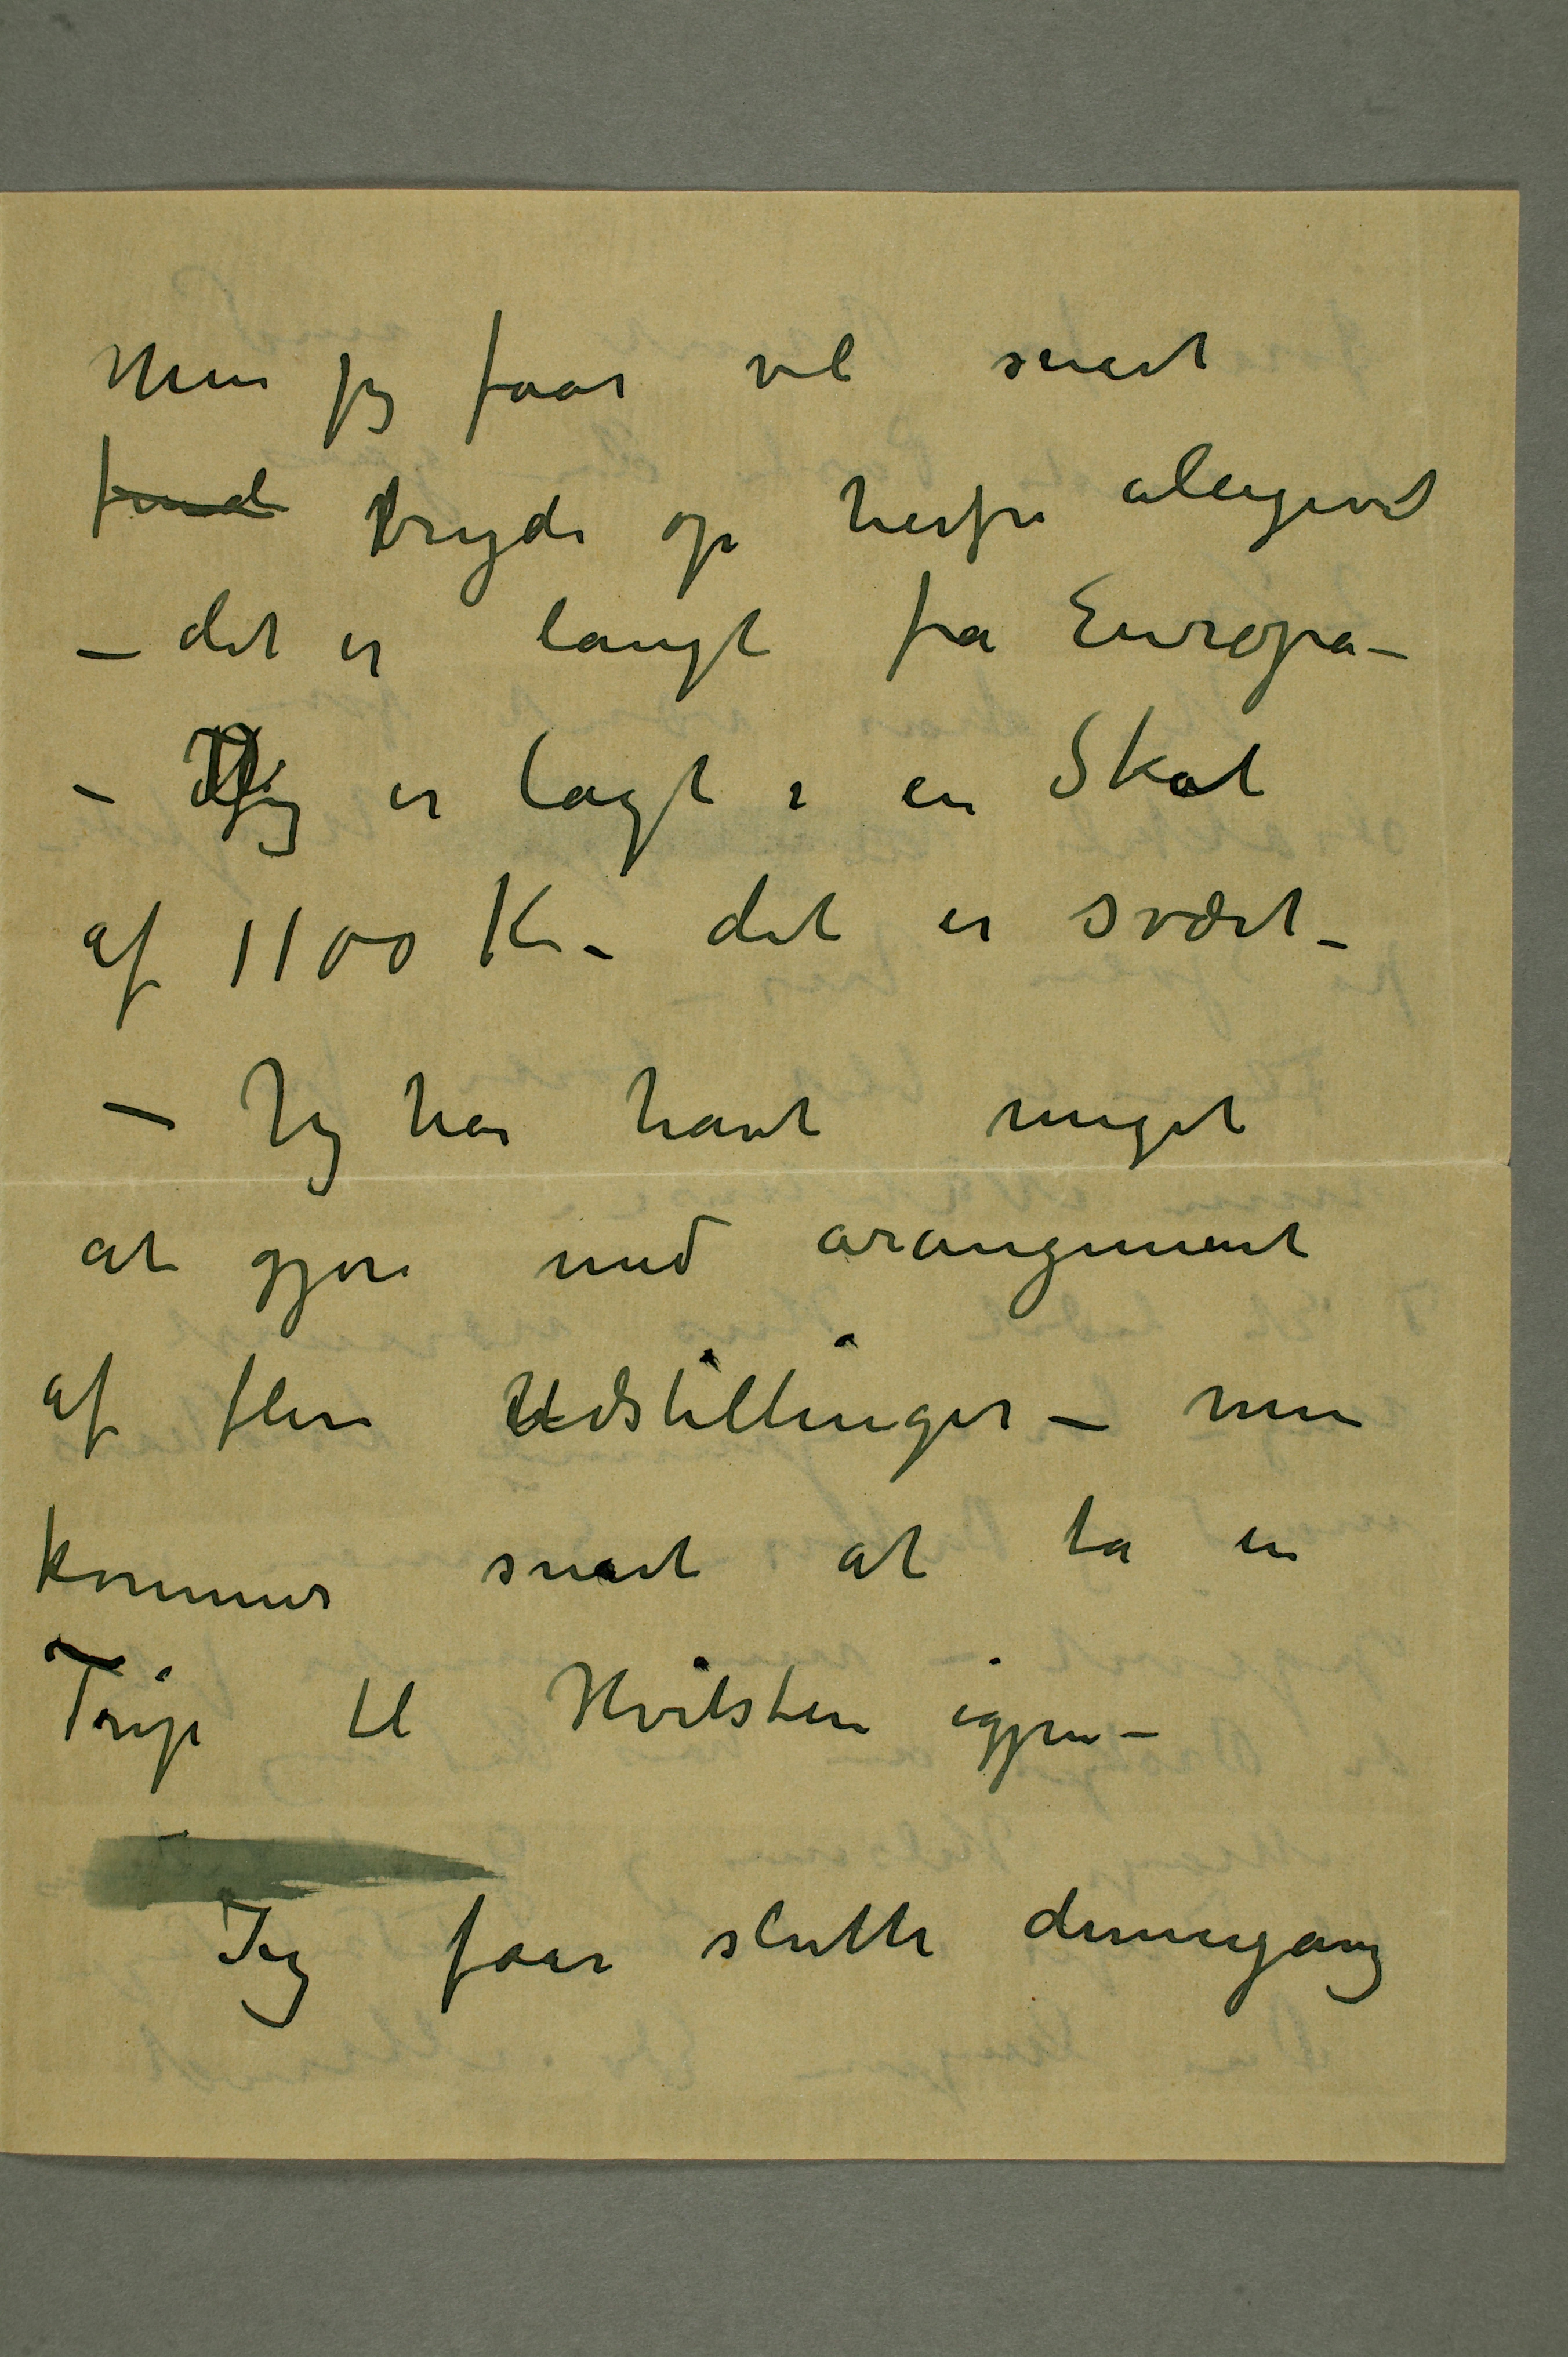 Men jeg faar vel snart
bryde op herfra alligevel
– det er langt fra Europa –
– Jeg er lagt i en Skat
af 1100 Kr – det er svært –
– Jeg har havt meget
at gjøre med arangement
af flere Udstillinger – men
kommer snart at ta en
Trip til Hvitsten igjen –
Jeg faar slutte dennegang